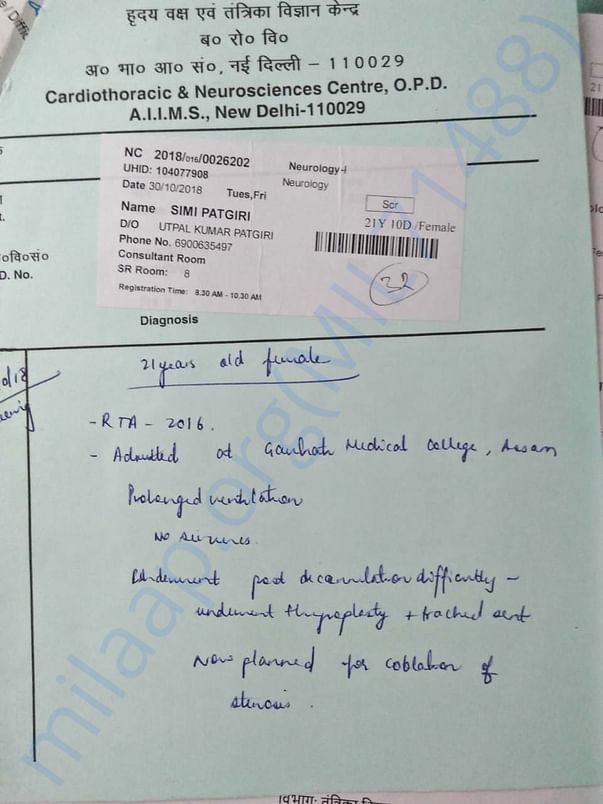 हृदय वक्ष एवं तंत्रिका विज्ञान केन्द्र
ब० रो० वि०
अ० भा० आ० सं०, नई दिल्ली – 110029
Cardiothoracic & Neurosciences Centre, O.P.D.
A.I.I.M.S., New Delhi-110029
NC 2018/016/0026202
Neurology-I
UHID: 104077908
Neurology
Date 30/10/2018 Tues,Fri
Scr
Name SIMI PATGIRI
21Y 10D /Female
D/O UTPAL KUMAR PATGIRI
Phone No. 6900635497
Consultant Room
SR Room: 8
32
Registration Time: 8.30 AM - 10.30 AM
०वि०सं०
D. No.
Diagnosis
21 years old female
- RTA - 2016.
- Admitted at Gauhati Medical College, Assam
Prolonged ventilation
No seizures.
Underwent post decannulation difficulty –
underwent thyroplasty + trached sent
Now planned for coblation of
stenosis.
milaap.org